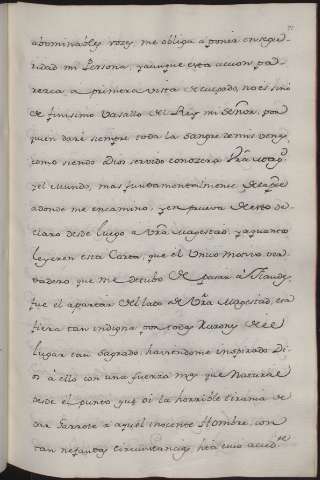 abominables vozes, me obliga a poner en segu-
ridad mi Persona, y aunque esta accion pa-
rezca a primera vista de culpado, no es sino
de finisimo vasallo del Rey mi Señor, por
quien daré siempre toda la sangre de mis venas
como siendo Dios servido conozerá Vra Magd
y el Mundo, mas fundamentalmente
adonde me encamino, y en prueva de esto de-
claro desde luego a Vra Magestad, y a quantos
leyeren esta Carta, que el Unico motivo ver-
dadero, que me detubo de pasar a Flandes,
fue el apartar del lado de Vra Magestad, esa
fiera tan indigna por todas Razones de ese
lugar tan sagrado, haviendome inspirado Di-
os a ello con una fuerza mas que Natural
desde el punto, que oi la horrible tirania de
dar Garrote a aquel inocente Hombre, con
tan nefandas circunstancias, hta cuio accidte